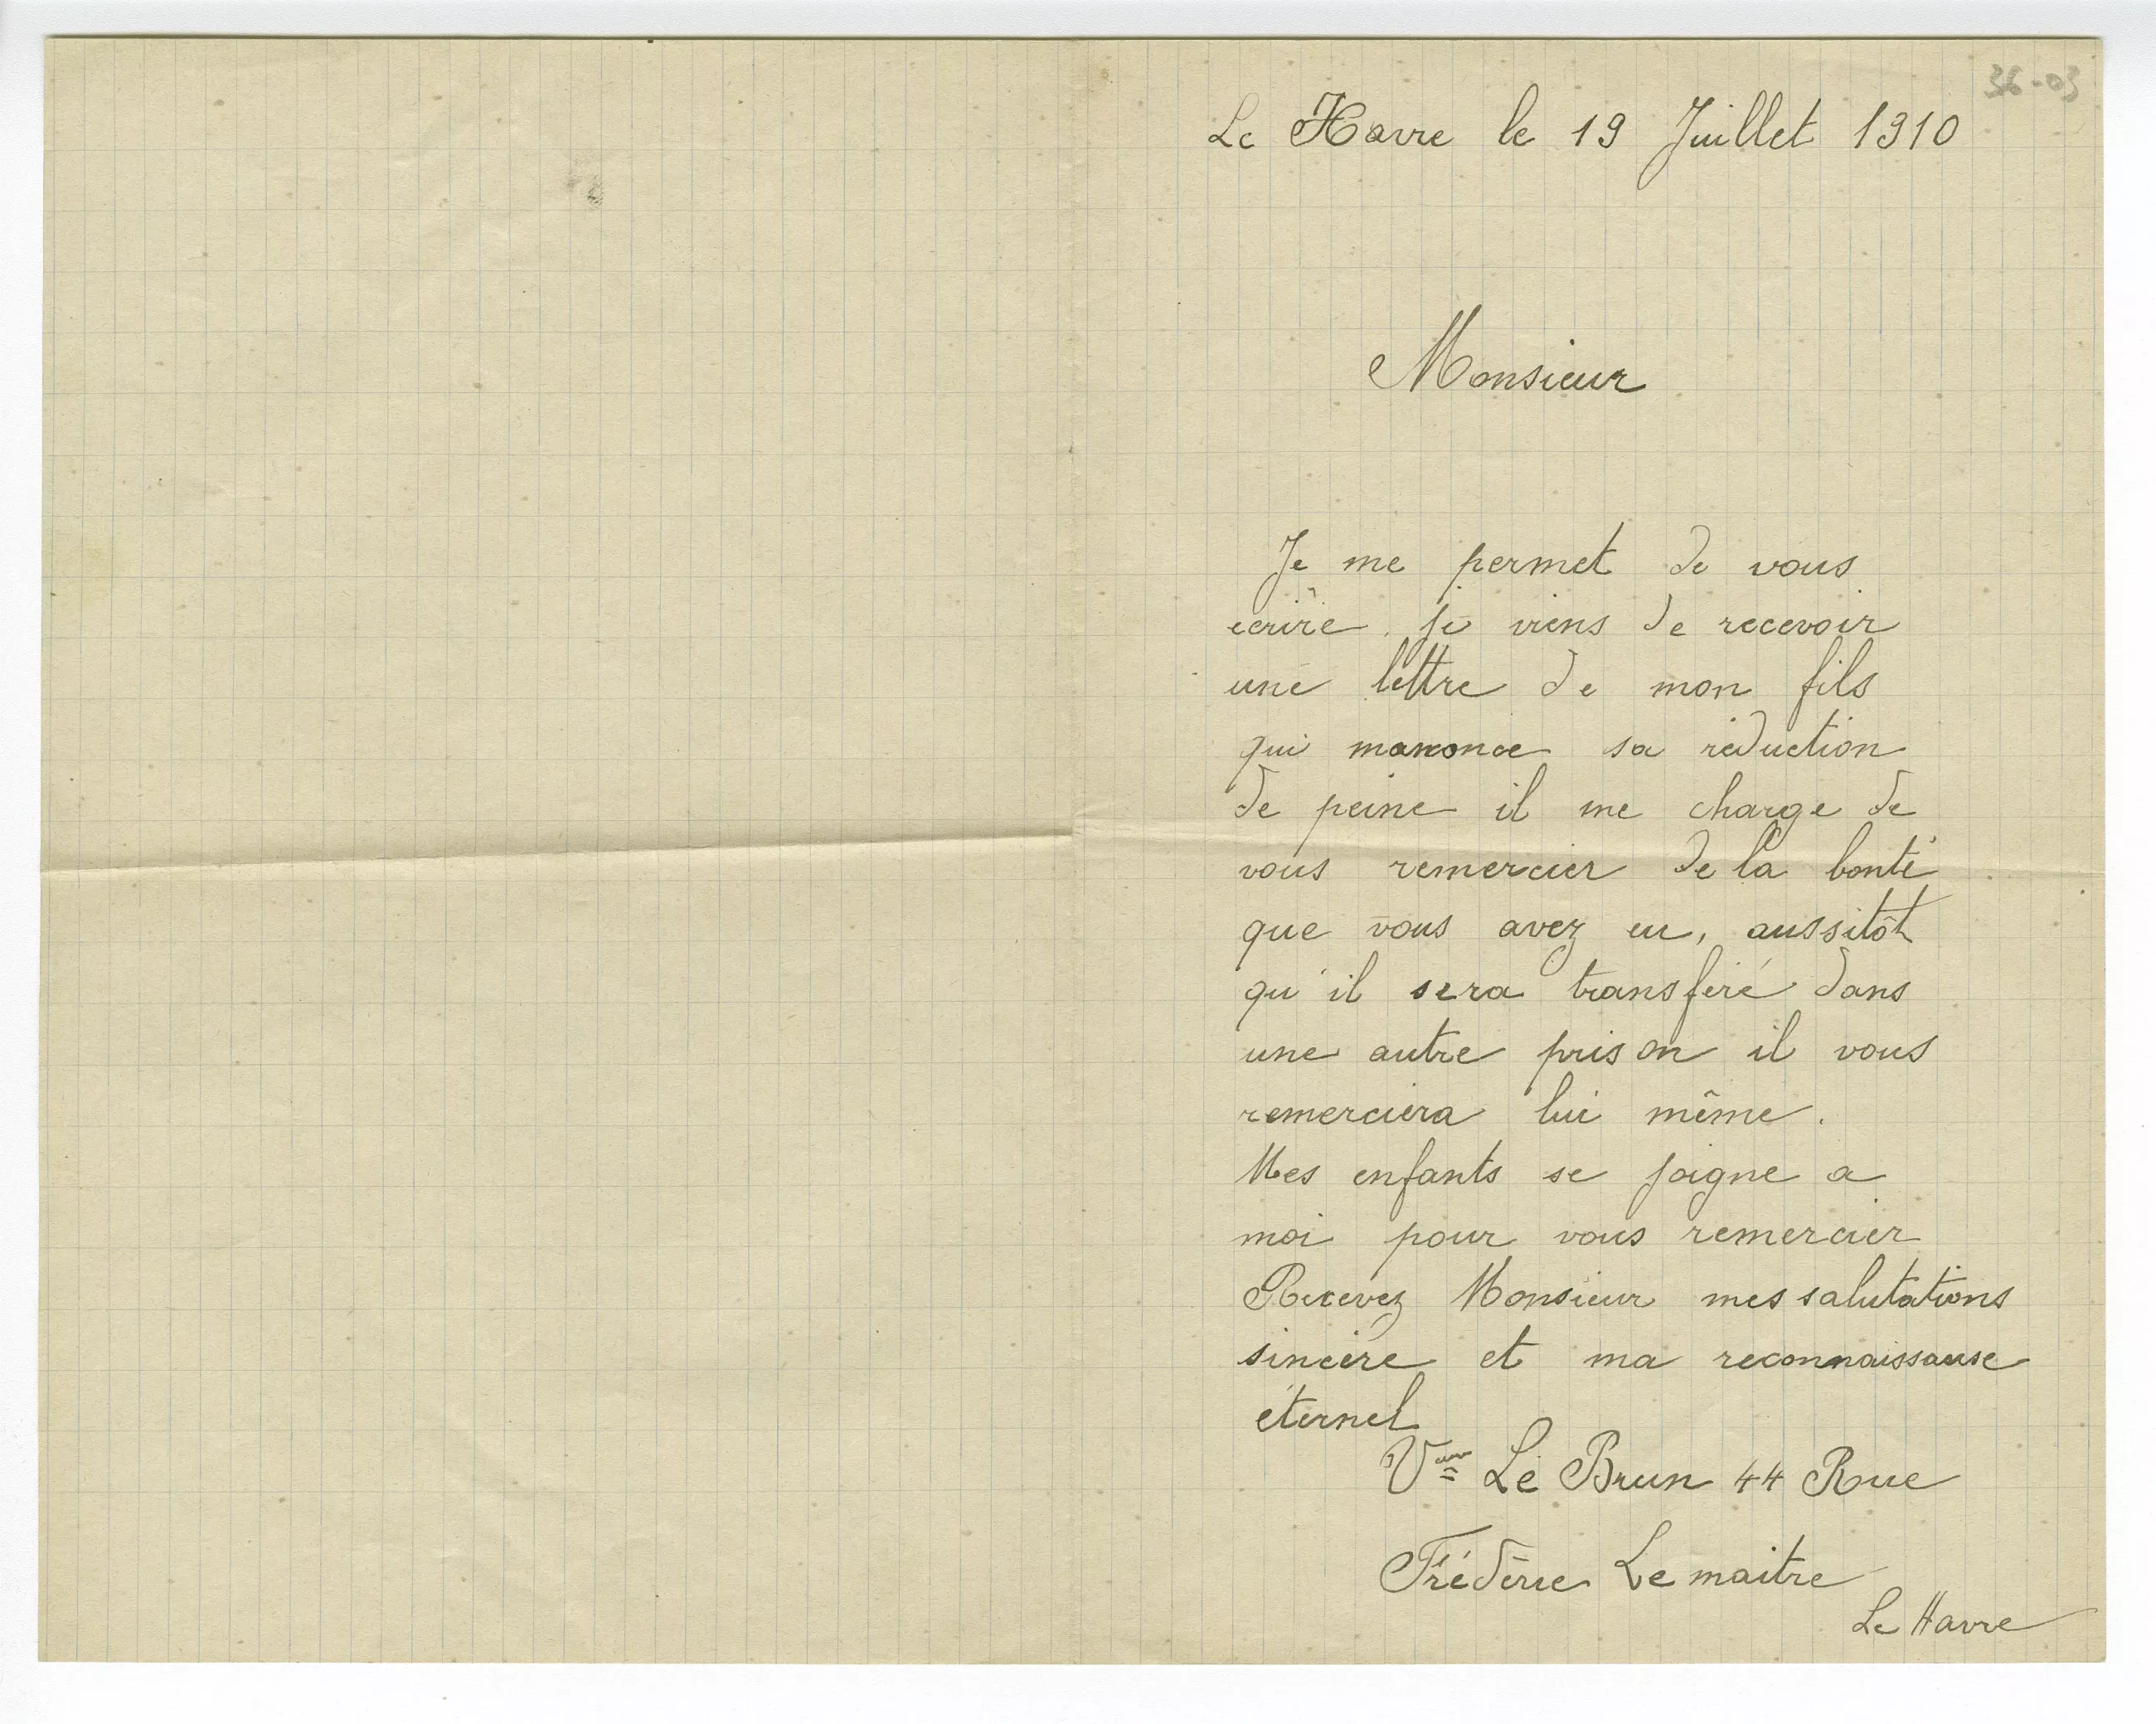 36-03
Le Havre le 19 Juillet 1910
Monsieur
Je me permet de vous
ecrire. je viens de recevoir
une lettre de mon fils
qui manonce sa réduction
de peine il me charge de
vous remercier de la bonté
que vous avez eu, aussitôt
qu'il sera transféré dans
une autre prison il vous
remerciera lui même.
Mes enfants se joigne a
moi pour vous remercier
Recevez Monsieur mes salutations
sincère et ma reconnaissanse
éternel
Vve Le Brun 44 Rue
Frédéric Lemaitre
Le Havre